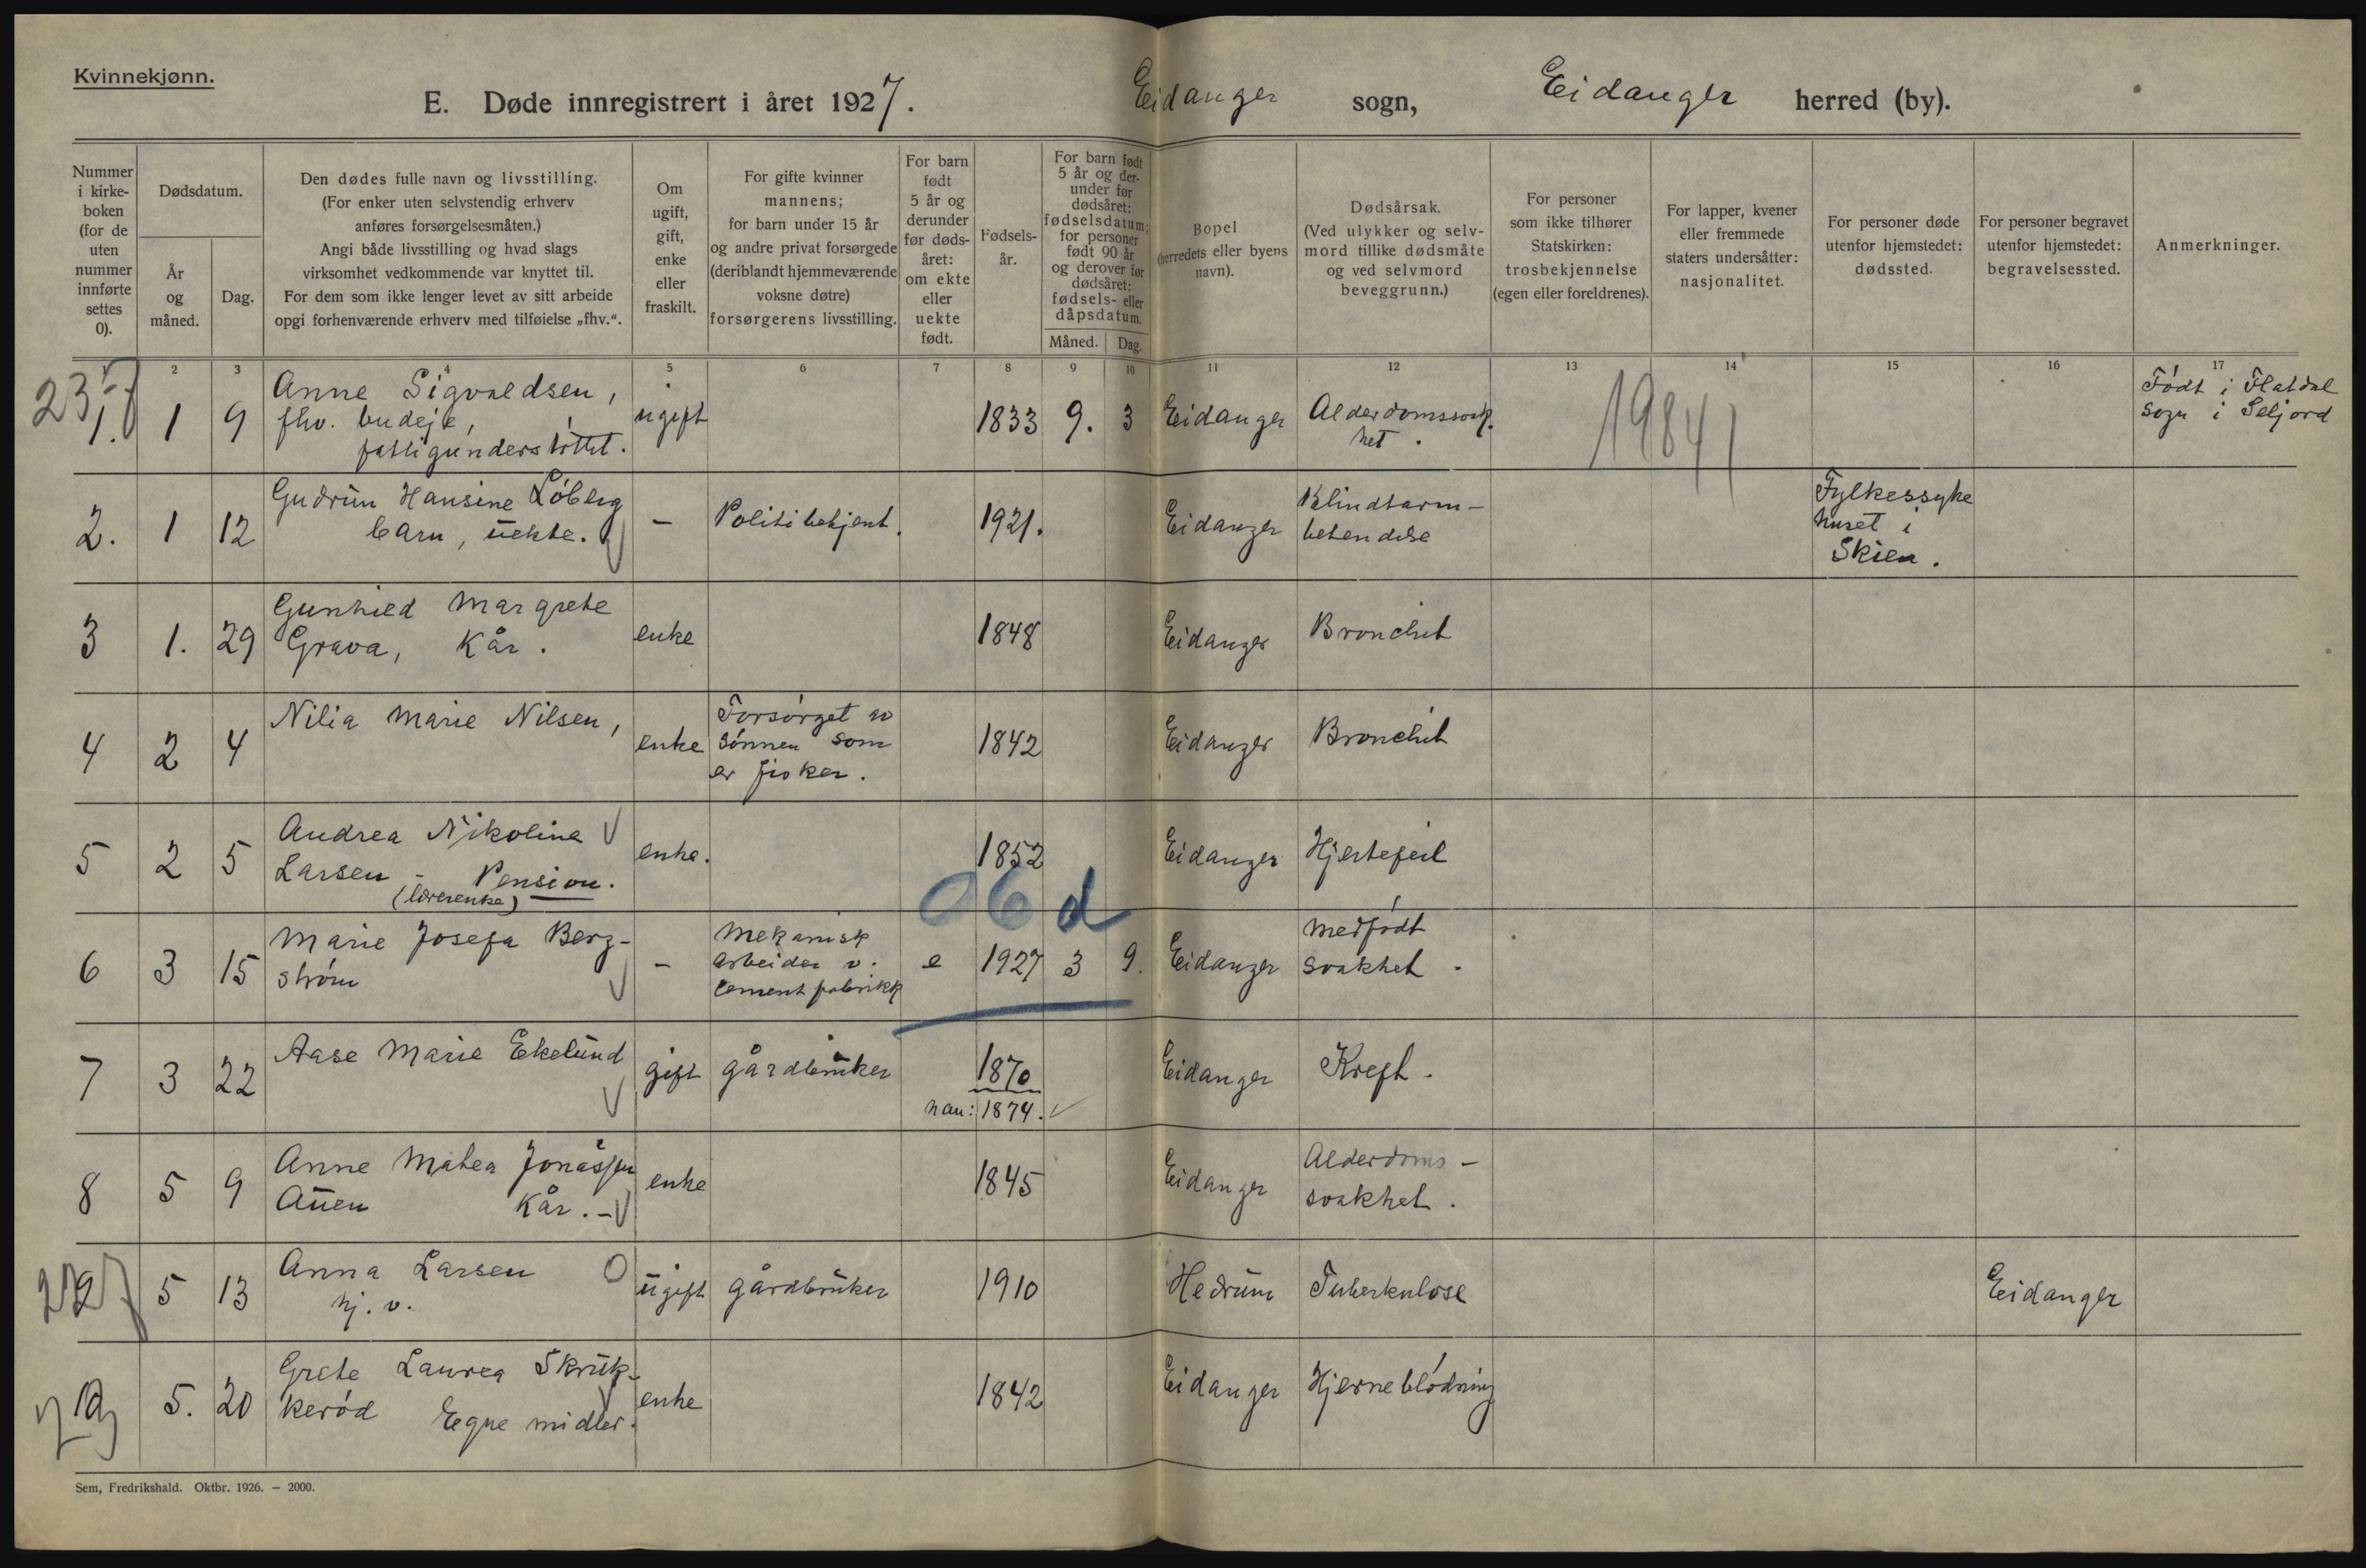 Kvinnekjønn.
E. Døde innregistrert i året 1927. Eidanger sogn, Eidanger herred (by).
Nummer i kirkeboken (for de uten nummer innførte settes 0).
Dødsdatum.
År og måned.
Dag.
Den dødes fulle navn og livsstilling.
(For enker uten selvstendig erhverv
anføres forsørgelsesmåten.)
Angi både livsstilling og hvad slags
virksomhet vedkommende var knyttet til.
For dem som ikke lenger levet av sitt arbeide
opgi forhenværende erhverv med tilføielse „fhv.“.
Om ugift, gift, enke eller fraskilt.
For gifte kvinner
mannens;
for barn under 15 år
og andre privat forsørgede
(deriblandt hjemmeværende
voksne døtre)
forsørgerens livsstilling.
For barn født 5 år og derunder før dødsåret: om ekte eller uekte født.
Fødselsår.
For barn født 5 år og derunder før dødsåret: fødselsdatum; for personer født 90 år og derover før dødsåret: fødsels- eller dåpsdatum.
Måned. Dag.
Bopel
(herredets eller byens
navn).
Dødsårsak.
(Ved ulykker og selv-
mord tillike dødsmåte
og ved selvmord
beveggrunn.)
For personer
som ikke tilhører
Statskirken:
trosbekjennelse
(egen eller foreldrenes).
For lapper, kvener
eller fremmede
staters undersåtter:
nasjonalitet.
For personer døde
utenfor hjemstedet:
dødssted.
For personer begravet
utenfor hjemstedet:
begravelsessted.
Anmerkninger.
2 3 4 5 6 7 8 9 10 11 12 13 14 15 16 17
1. 1 9 Anne Sigvaldsen, fhv. budeje, fattigunderstøttet. ugift 1833 9. 3 Eidanger Alderdomssvakhet. 19841 Født i Flatdal sogn i Seljord
2. 1 12 Gudrun Hansine Løberg barn, uekte. – Politibetjent. 1921. Eidanger Blindtarm-betendelse Fylkessykehuset i Skien.
3 1. 29 Gunhild Margrete Grava, Kår. enke 1848 Eidanger Bronchit
4 2 4 Nilia Marie Nilsen, enke Forsørget av sønnen som er fisker. 1842 Eidanger Bronchit
5 2 5 Andrea Nikoline Larsen – Pension. (lærerenke) enke. 1852 Eidanger Hjertefeil
06 d
6 3 15 Marie Josefa Berg-strøm – Mekanisk arbeider v. cementfabrikk e 1927 3 9. Eidanger Medfødt svakhet.
7 3 22 Aase Marie Ekelund gift gårdbruker 1870 nau: 1874. Eidanger Kreft.
8 5 9 Anne Mathea Jonassen Auen Kår. – enke 1845 Eidanger Alderdoms-svakhet.
9 5 13 Anna Larsen hj. v. ugift gårdbruker 1910 Hedrum Tuberkulose Eidanger
10 5. 20 Grete Laurea Skruk-kerød Egne midler. enke 1842 Eidanger Hjerneblødning
Sem, Fredrikshald. Oktbr. 1926. – 2000.